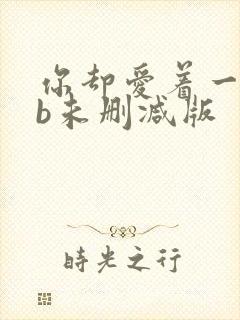 你却爱着一
b未删减版
時光之行